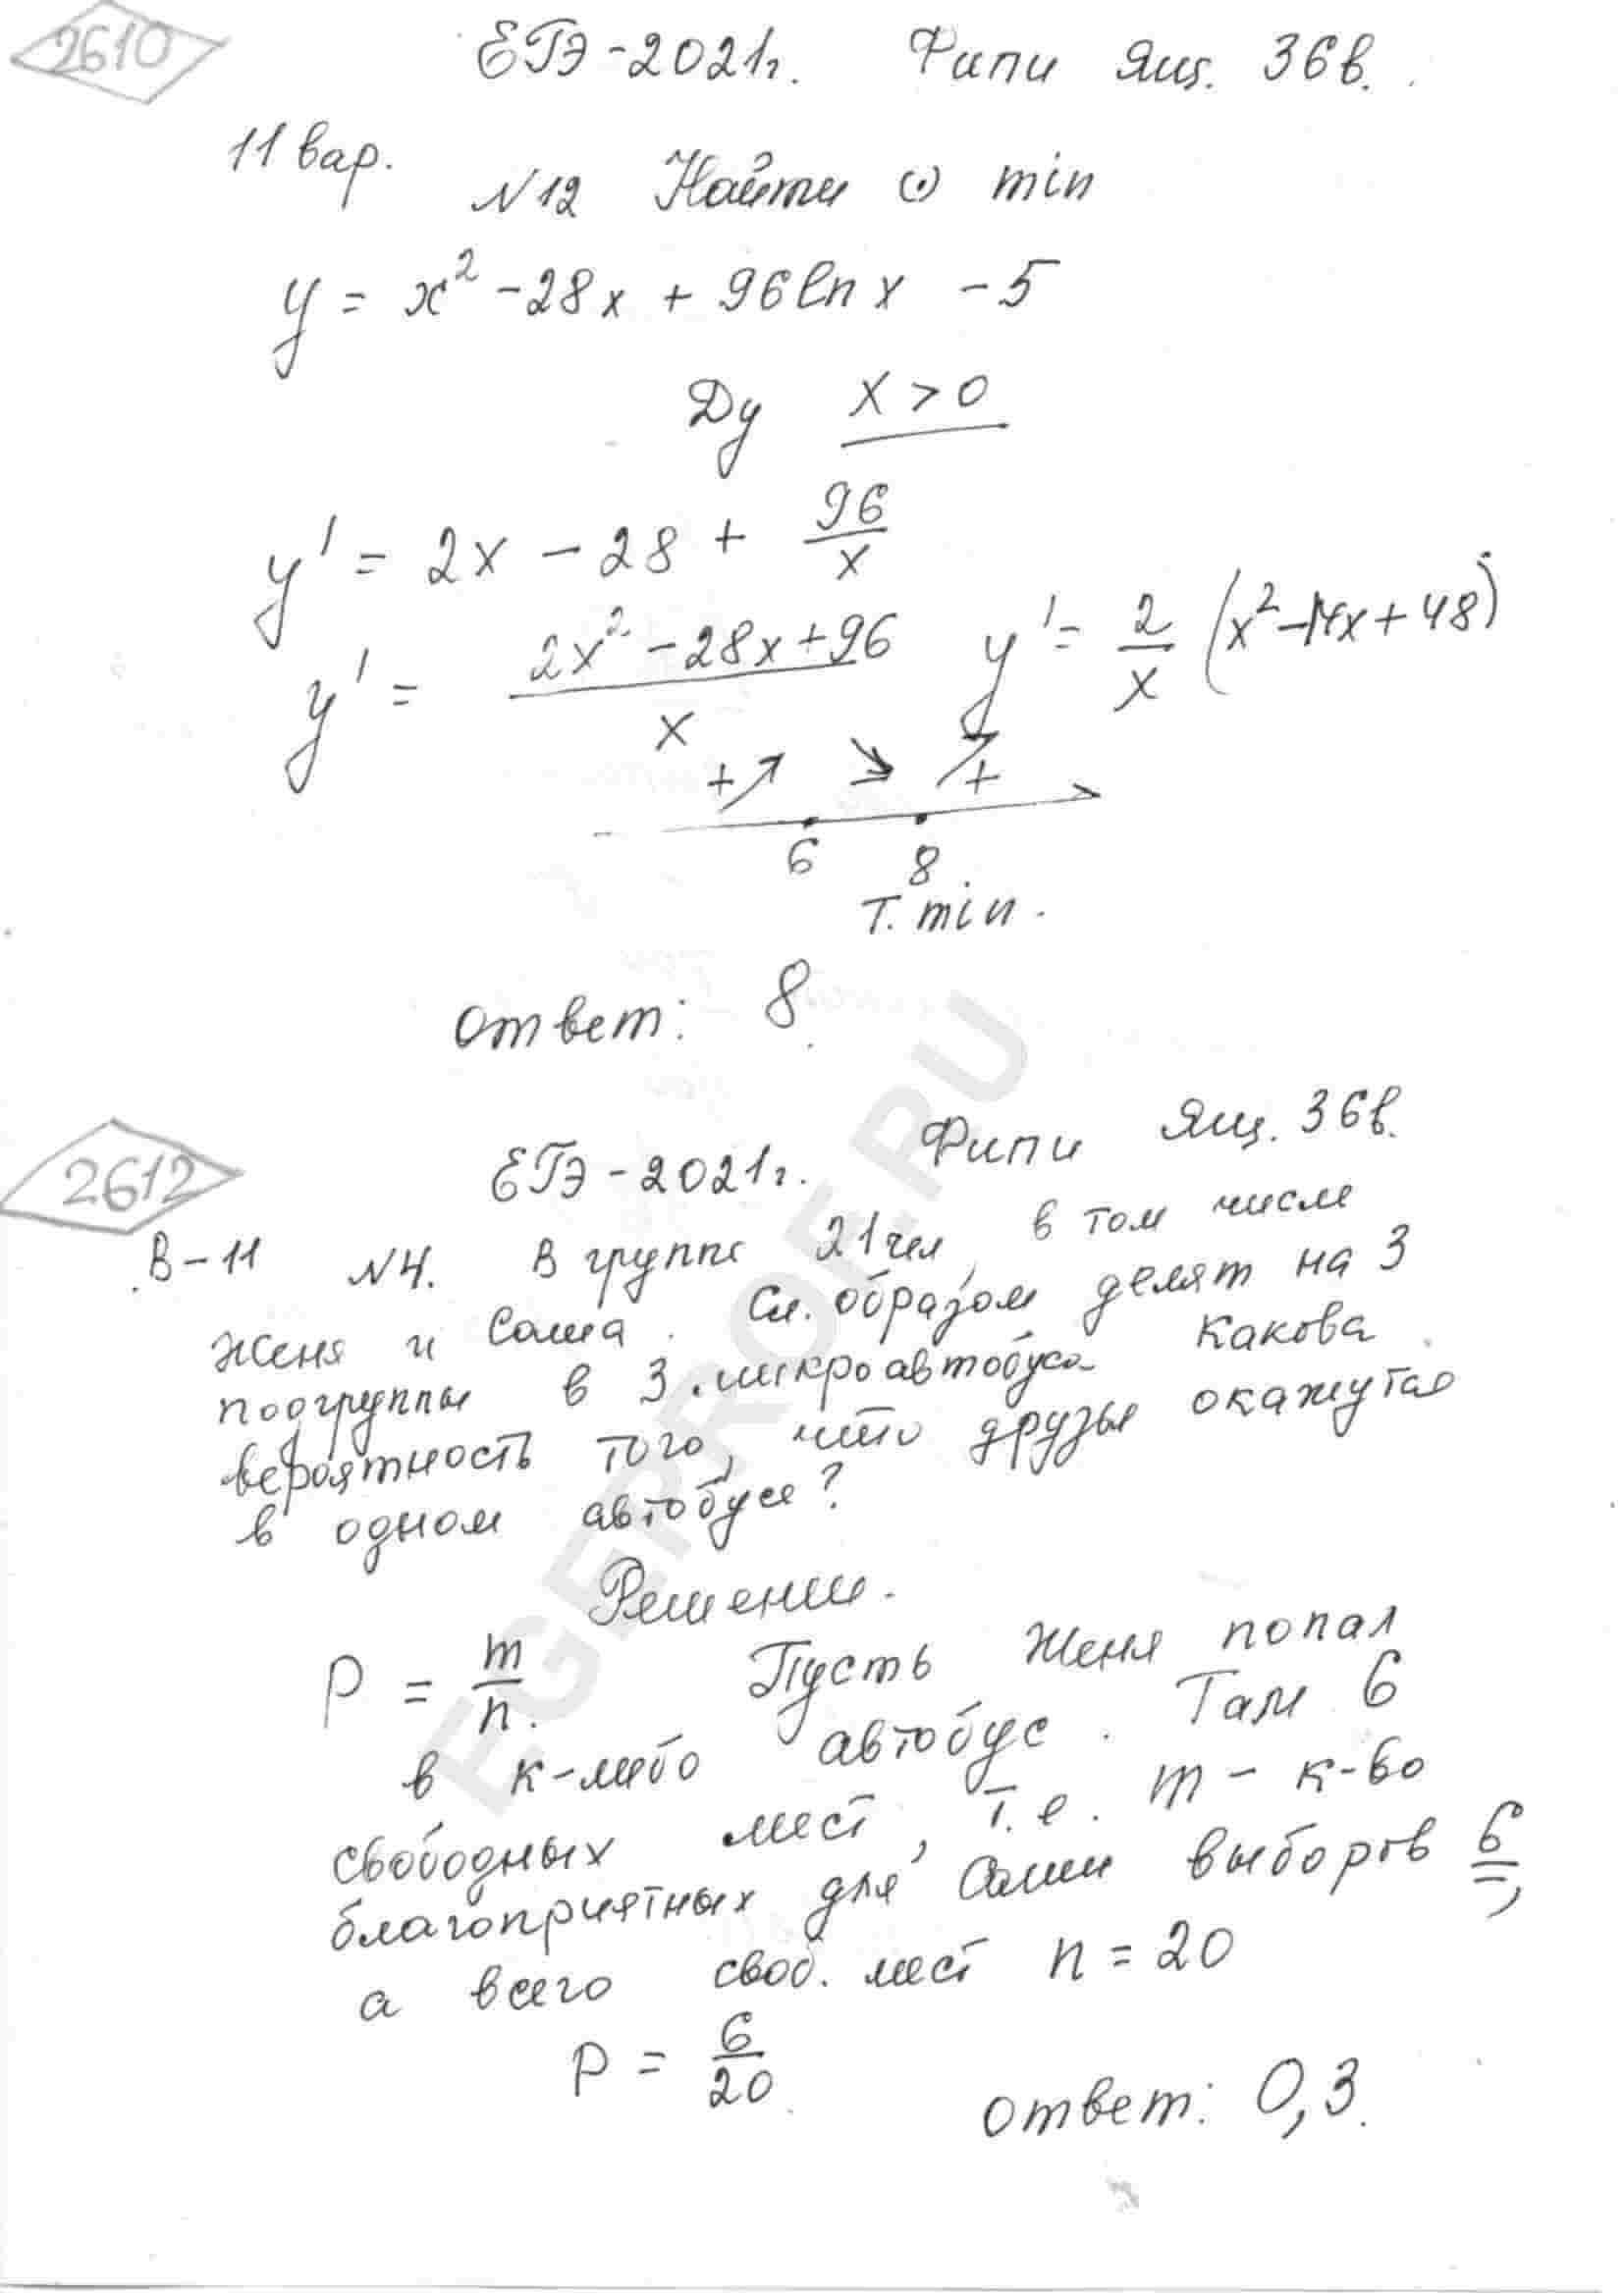 2610
ЕГЭ-2021г. Фипи Ящ. 36в.
11 вар.
N12 Найти (·) min
y = x² - 28x + 96 ln x - 5
Dy x > 0
y' = 2x - 28 + 96/x
y' = (2x² - 28x + 96)/x y' = 2/x (x² - 14x + 48)
+ ↗ ↘ ↗ +
6 8
т. min.
Ответ: 8
2612
ЕГЭ-2021г. Фипи Ящ. 36в.
В-11 N4. В группе 21 чел, в том числе
Женя и Саша. Сл. образом делят на 3
подгруппы в 3 микроавтобуса Какова
вероятность того, что друзья окажутся
в одном автобусе?
Решение.
P = m/n. Пусть Женя попал
в к-либо автобус. Там 6
свободных мест, т.е. m - к-во
благоприятных для Саши выборов 6,
а всего своб. мест n = 20
P = 6/20 Ответ: 0,3.
EGEPROF.RU